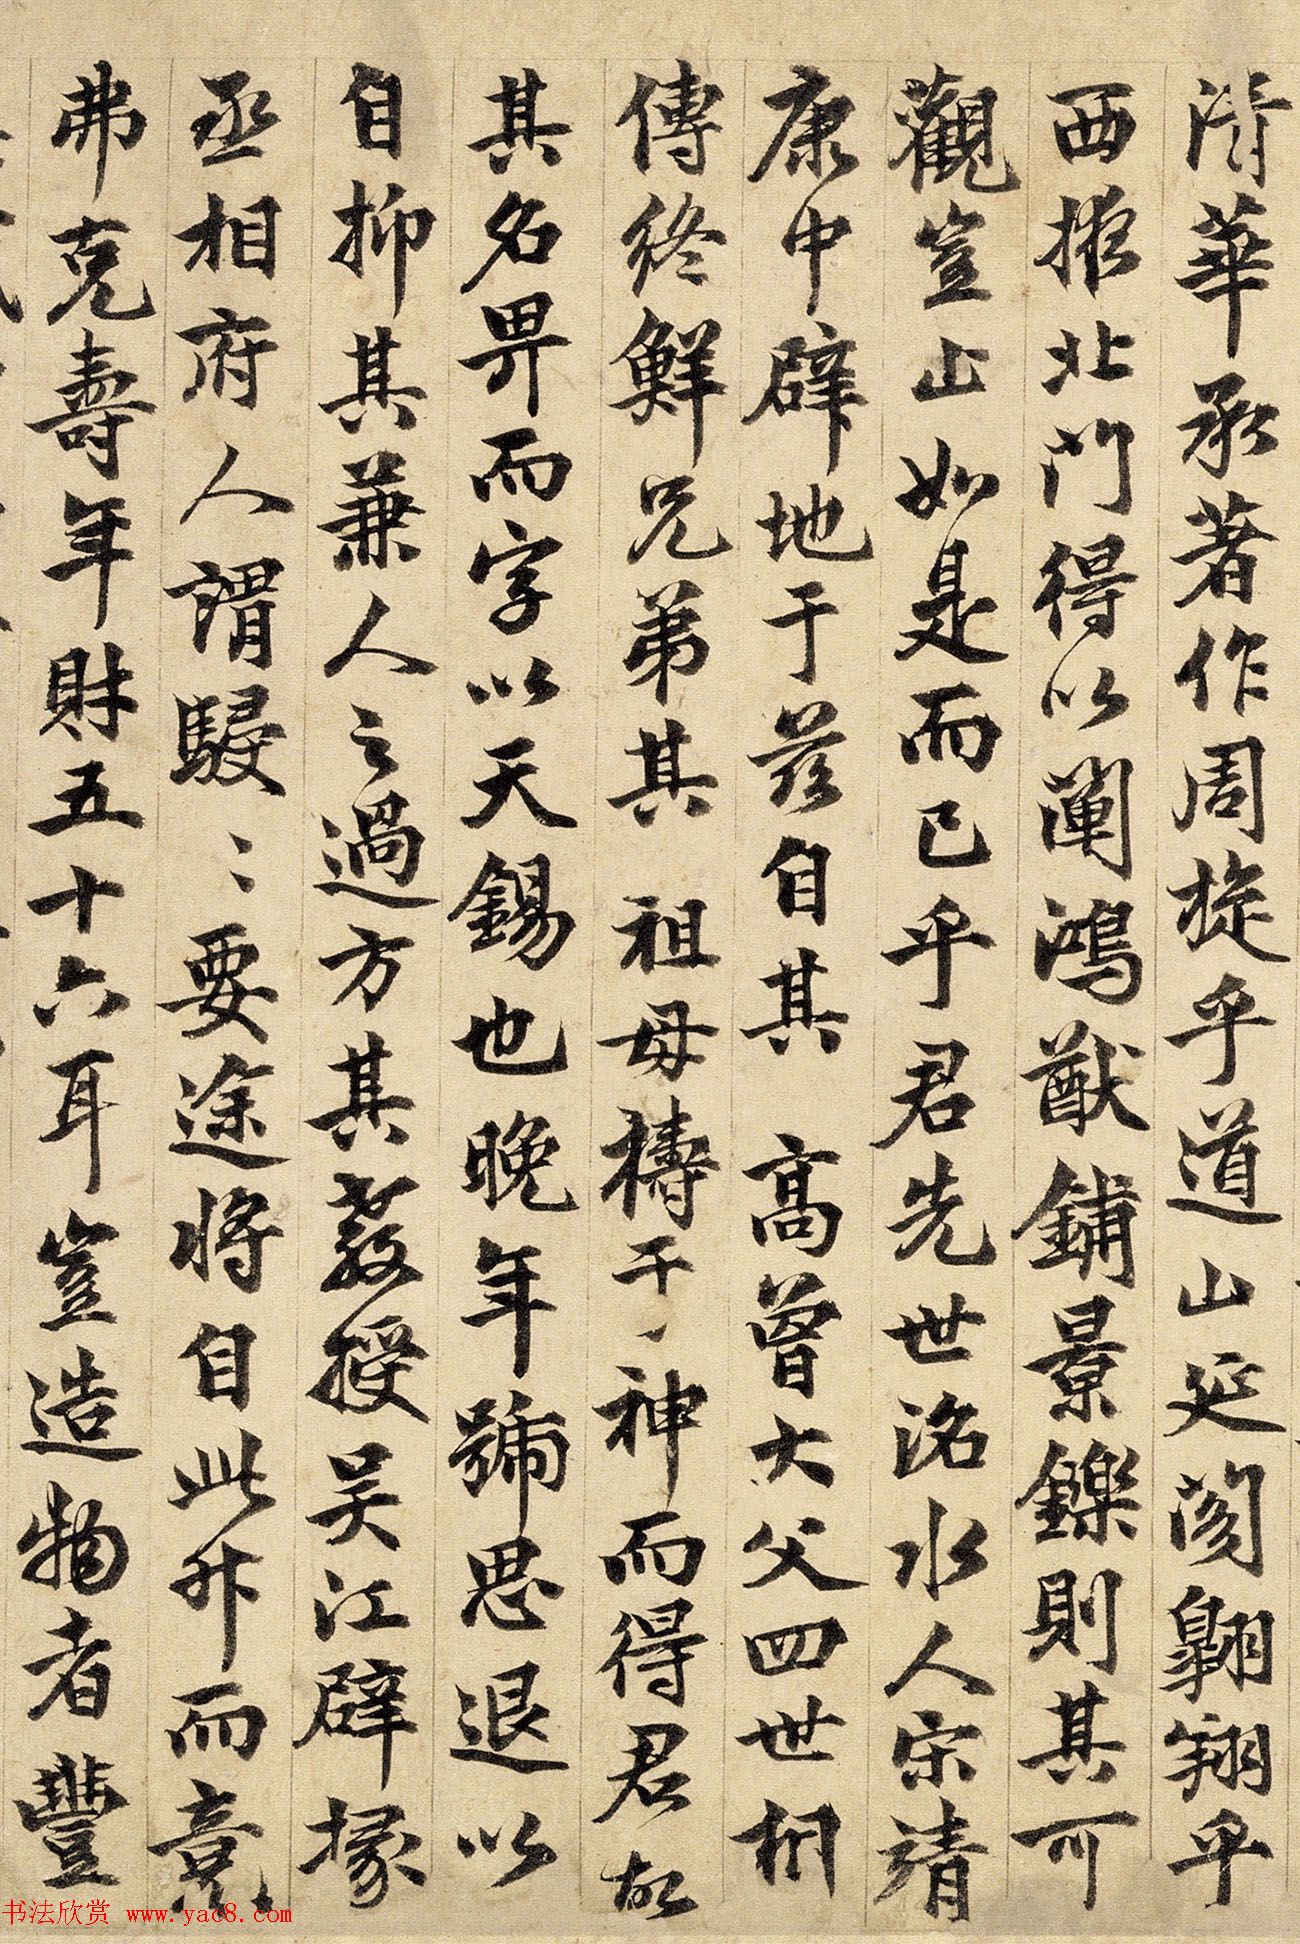 清華承著作周旋乎道山延閣翱翔乎
西掖北門得以闡鴻猷鋪景鑠則其可
觀豈止如是而已乎君先世洺水人宋靖
康中辟地于茲自其高曾大父四世相
傳終鮮兄弟其祖母禱于神而得君故
其名畀而字以天錫也晚年號思退以
自抑其兼人之過方其教授吴江辟掾
丞相府人謂駸〻要途將自此升而竟
弗克壽年財五十六耳豈造物者豐
书法欣赏 www.yac8.com